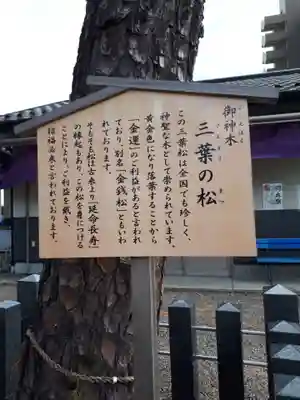 御神木
三葉の松
この三葉松は全国でも珍しく、
神聖な木として崇められています。
黄金色になり落葉することから
「金運」のご利益があると言われ
ており、別名「金銭松」ともいわ
れております。
そもそも松は古来より「延命長寿」
の縁起もあり、この松を身につける
ことにより、ご利益を戴き、
招福由来と言われております。